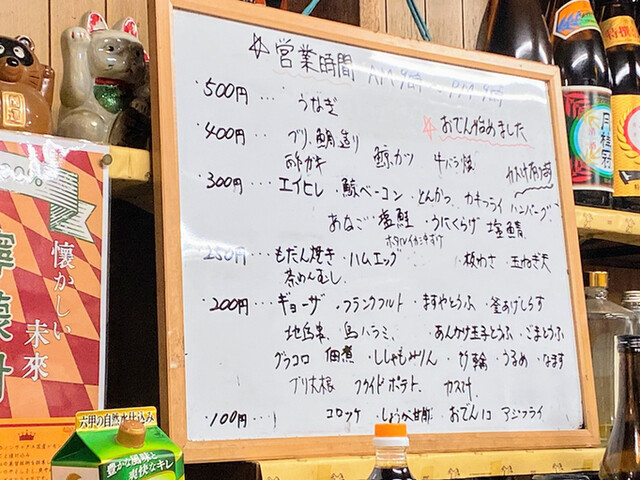 ☆営業時間 AM9時~PM9時
・500円… うなぎ
・400円… ブリ、鯛造り
☆おでん始めました
酢カキ 鯨カツ 牛バラ焼
・300円… エイヒレ・鯨ベーコン・とんかつ カキフライ ハンバーグ
あなご・塩鮭・うにくらげ 塩鯖
ホタルイカ
・250円… もだん焼き・ハムエッグ 板わさ・玉ねぎ天
茶わんむし
・200円… ギョーザ・フランクフルト・ますやとうふ・釜あげしらす
鳥ハラミ、 あんかけ玉子とうふ・ごまとうふ
グラコロ 佃煮・ししゃもみりん・竹輪・うるめ・なます
ブリ大根 フライドポテト
・100円… コロッケ・しょうが甘酢 おでん1コ アジフライ
懐かしい
未來
六甲の自然水仕込み
豊かな風味と
爽快なキレ
月桂冠
特撰